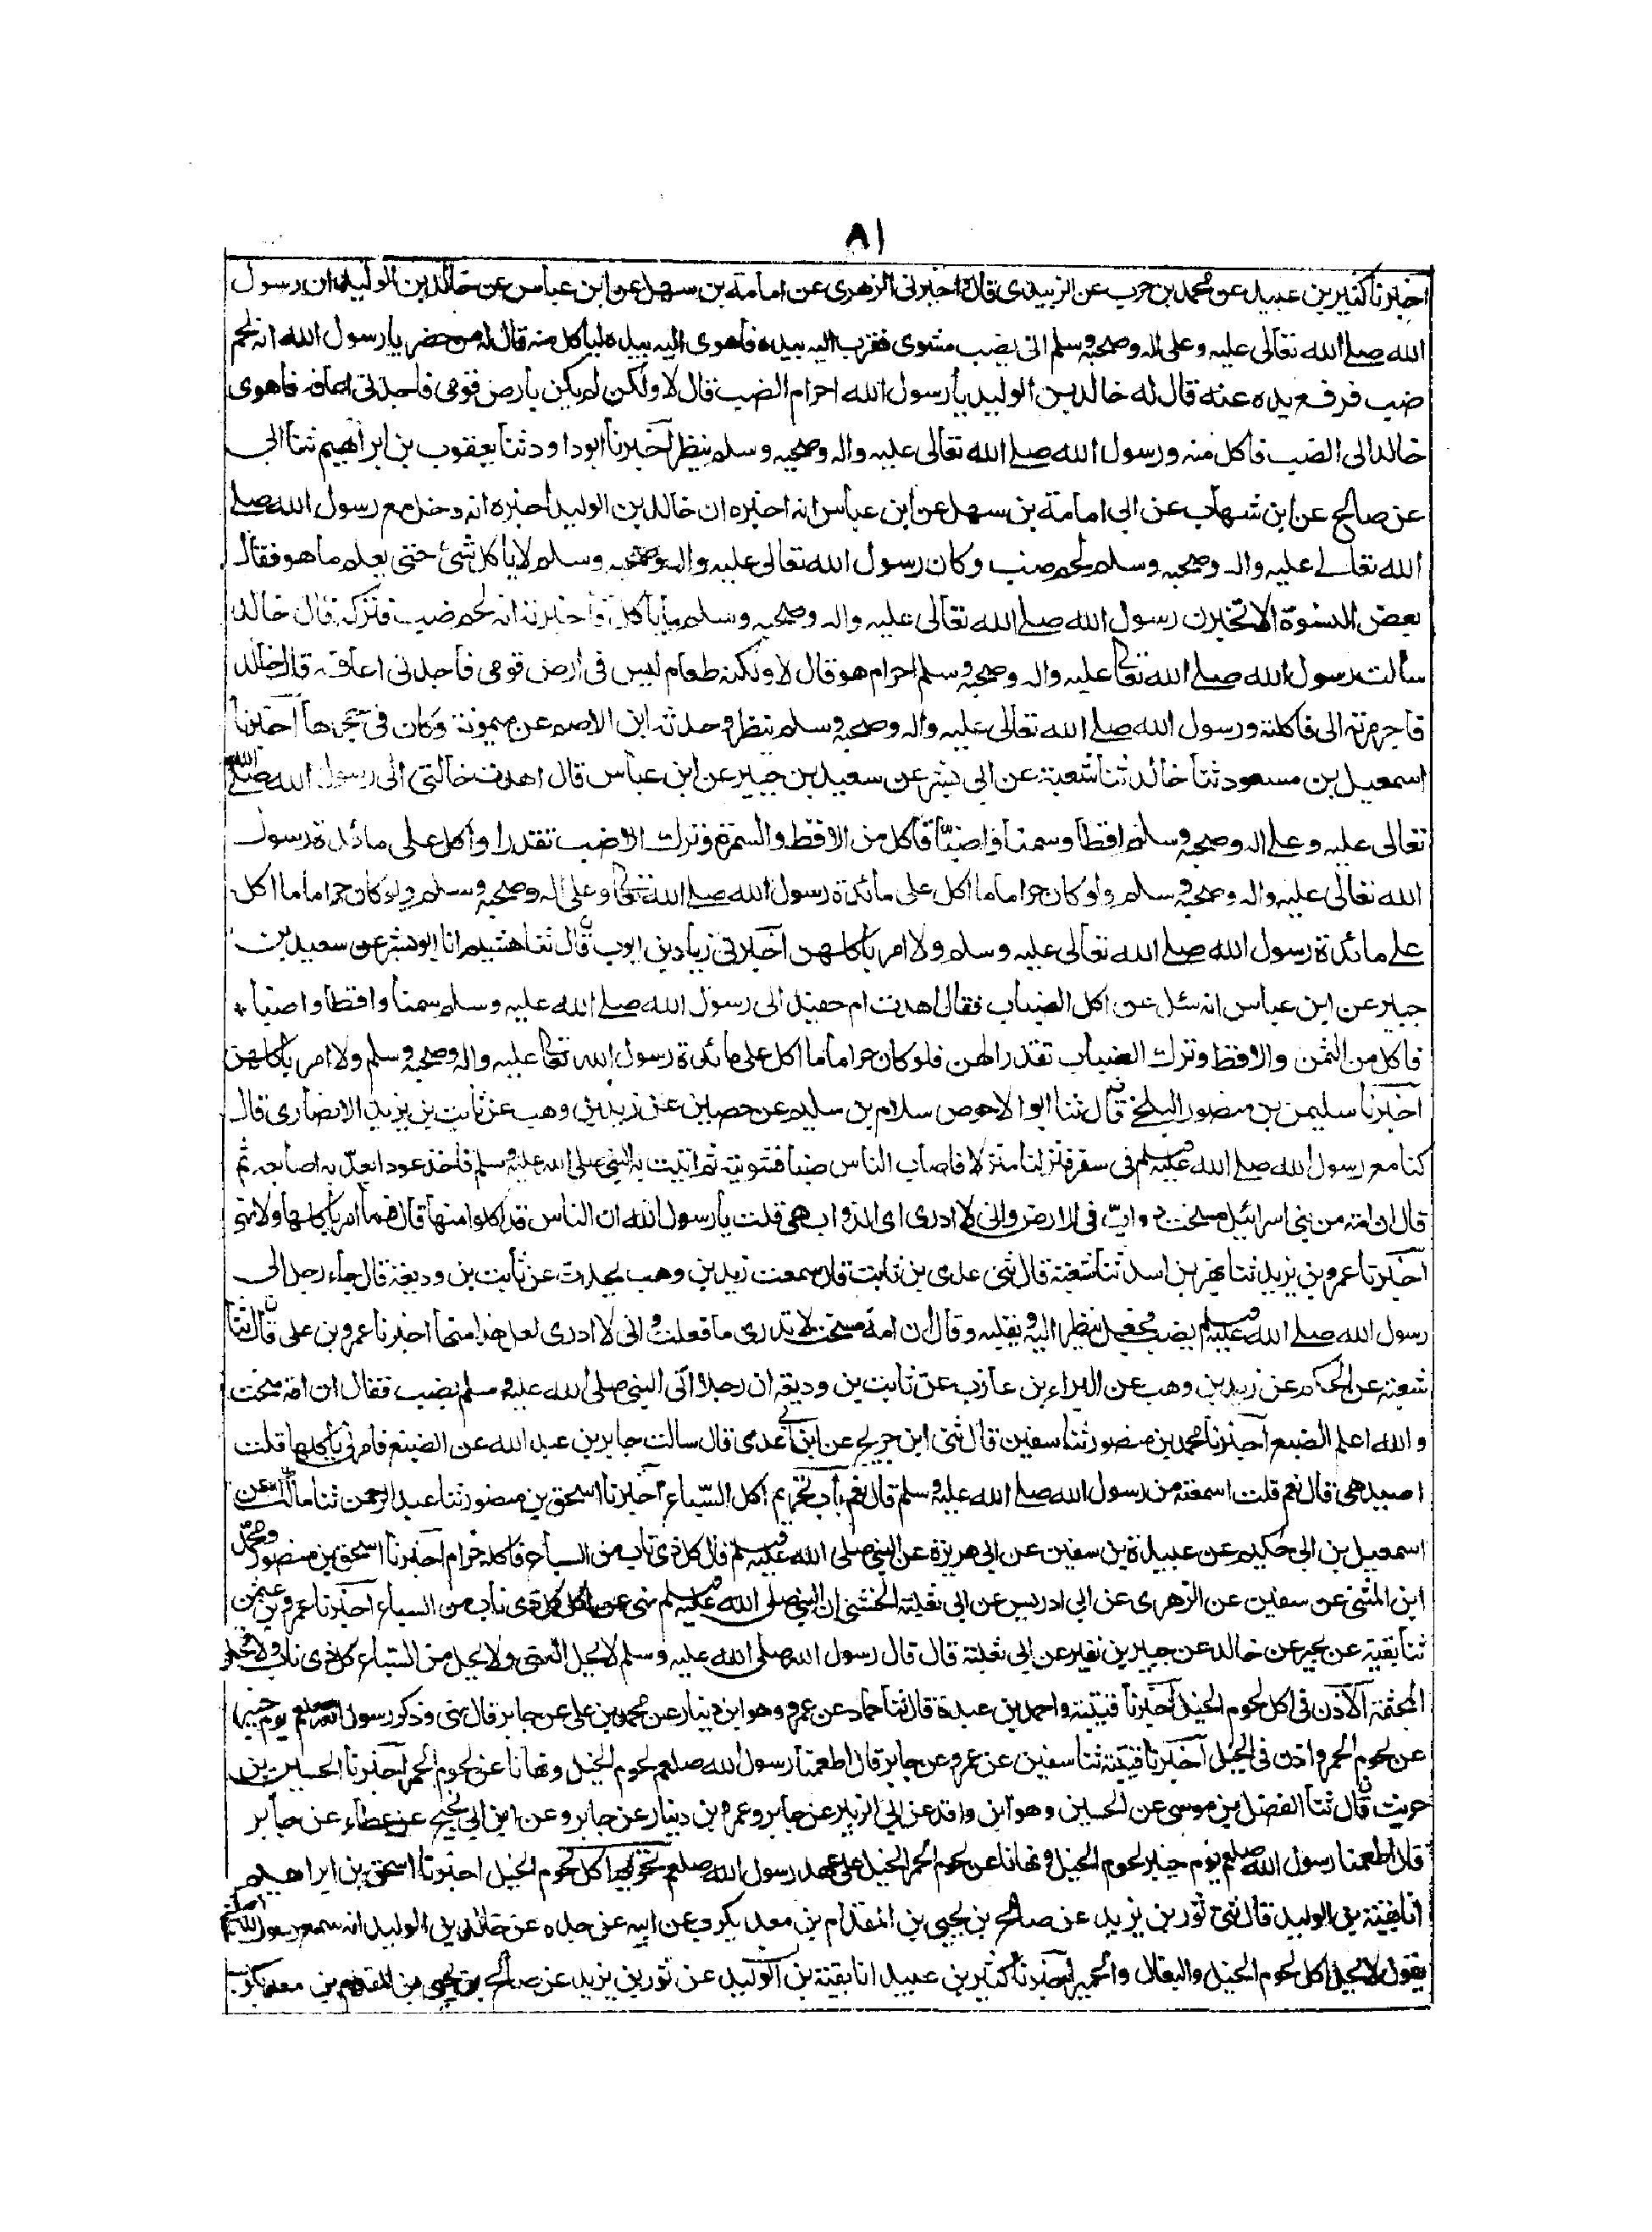 ٨١
اخبرنا كثير بن عبيد عن محمد بن حرب عن الزبيدى قال اخبرنى الزهرى عن امامة بن سهل عن ابن عباس عن خالد بن الوليد ان رسول
الله صلے الله تعالى عليه وعلى اله وصحبه وسلم اتى بضب مشوى فقرب اليه بيده فاهوى اليه بيده لياكل منه قال له من حضر يا رسول الله انه لحم
ضب فرفع يده عنه قال له خالد بن الوليد يا رسول الله احرام الضب قال لا ولكن لم يكن بارض قومى فاجدنى اعافه فاهوى
خالد الى الضب فاكل منه ورسول الله صلے الله تعالى عليه واله وصحبه وسلم ينظر اخبرنا ابو داود ثنا يعقوب بن ابراهيم ثنا ابى
عن صالح عن ابن شهاب عن ابى امامة بن سهل عن ابن عباس انه اخبره ان خالد بن الوليد اخبره انه دخل مع رسول الله صلے
الله تعالے عليه واله وصحبه وسلم لحم ضب وكان رسول الله تعالى عليه واله وصحبه وسلم لا ياكل شئ حتى يعلم ما هو فقال
بعض النسوة الا تخبرن رسول الله صلے الله تعالى عليه واله وصحبه وسلم ما ياكل فاخبرنه انه لحم ضب فتركه قال خالد
سالت رسول الله صلے الله تعا عليه واله وصحبه وسلم احرام هو قال لا ولكنه طعام ليس فى ارض قومى فاجدنى اعافه قال خالد
فاجررته الى فاكلته ورسول الله صلے الله تعالى عليه واله وصحبه وسلم ينظر وحدثه ابن الاصم عن ميمونة وكان فى حجرها اخبرنا
اسمعيل بن مسعود ثنا خالد ثنا شعبة عن ابى بشر عن سعيد بن جبير عن ابن عباس قال اهدت خالتى الى رسول الله صلے الله
تعالى عليه وعلے اله وصحبه وسلم اقطا وسمنا واضبّا فاكل من الاقط والسمن وترك الاضب تقذرا واكل على مائدة رسول
الله تعالى عليه واله وصحبه وسلم ولو كان حراما ما اكل على مائدة رسول الله صلے الله تعا وعلى اله وصحبه وسلم ولو كان حراما ما اكل
علے مائدة رسول الله صلے الله تعالى عليه وسلم ولا امر باكلهن اخبرنى زياد بن ايوب قال ثنا هشيم انا ابو بشر عن سعيد بن
جبير عن ابن عباس انه سئل عن اكل الضباب فقال اهدت ام حفيد الى رسول الله صلے الله عليه وسلم سمنا واقطا واضبا
فاكل من الثمن والاقط وترك الضباب تقذرا لهن فلو كان حراما ما اكل على مائدة رسول الله تعا عليه واله وصحبه وسلم ولا امر باكلهن
اخبرنا سليمن بن منصور البلخى قال ثنا ابو الاحوص سلام بن سليم عن حصين عن زيد بن وهب عن ثابت بن يزيد الانصارى قال
كنا مع رسول الله صلے الله عليه وسلم فى سفر فنزلنا منزلا فاصاب الناس ضبا فشويته ثم اتيت به النبى صلى الله عليه وسلم فاخذ عودا يعد به اصابعه ثم
قال ان امة من بنى اسرائيل مسخت دواب فى الارض وانى لا ادرى اى الدواب هى قلت يا رسول الله ان الناس قد اكلوا منها قال فما امر باكلها ولا نهى
اخبرنا عمرو بن يزيد ثنا بهز بن اسد ثنا شعبة قال ثنى عدى بن ثابت قال سمعت زيد بن وهب يحدث عن ثابت بن وديعة قال جاء رجل الى
رسول الله صلے الله عليه وسلم بضب فجعل ينظر اليه ويقلبه وقال ان امة مسخت لا تدرى ما فعلت وانى لا ادرى لعل هذا منها اخبرنا عمرو بن على قال ثنا
شعبة عن الحكم عن زيد بن وهب عن البراء بن عازب عن ثابت بن وديعة ان رجلا اتى النبى صلى الله عليه وسلم بضب فقال ان امة مسخت
والله اعلم الضبع اخبرنا محمد بن منصور ثنا سفين قال ثنى ابن جريج عن ابن ابى عدى قال سالت جابر بن عبد الله عن الضبع فامرنى باكلها قلت
اصيد هى قال نعم قلت اسمعته من رسول الله صلے الله عليه وسلم قال نعم باب تحريم اكل السباع اخبرنا اسحق بن منصور ثنا عبد الرحمن ثنا مالك عن
اسمعيل بن ابى حكيم عن عبيدة بن سفين عن ابى هريرة عن النبى صلى الله عليه وسلم قال كل ذى ناب من السباع فاكله حرام اخبرنا اسحق بن منصور ومحمد
ابن المثنى عن سفين عن الزهرى عن ابى ادريس عن ابى ثعلبة الخشنى ان النبى صلى الله عليه وسلم نهى عن اكل كل ذى ناب من السباع اخبرنا عمرو بن عثمن
ثنا بقية عن بحير عن خالد عن جبير بن نفير عن ابى ثعلبة قال قال رسول الله صلى الله عليه وسلم لا يحل النهبى ولا يحل من السباع كل ذى ناب ولا تحل
المجثمة الاذن فى اكل لحوم الخيل اخبرنا قتيبة واحمد بن عبدة قال ثنا حماد عن عمرو وهو ابن دينار عن محمد بن على عن جابر قال نهى وذكر رسول الله صلعم يوم خيبر
عن لحوم الحمر واذن فى الخيل اخبرنا قتيبة ثنا سفين عن عمرو عن جابر قال اطعمنا رسول الله صلعم لحوم الخيل ونهانا عن لحوم الحمر اخبرنا الحسين بن
حريث قال ثنا الفضل بن موسى عن الحسين وهو ابن واقد عن ابى الزبير عن جابر وعمرو بن دينار عن جابر وعن ابن ابى نجيح عن عطاء عن جابر
قال اطعمنا رسول الله صلعم يوم خيبر لحوم الخيل ونهانا عن لحوم الحمر الخيل على عهد رسول الله صلعم تحريم اكل لحوم الخيل اخبرنا اسحق بن ابراهيم
انا بقية بن الوليد قال ثنى ثور بن يزيد عن صالح بن يحيى بن المقدام بن معد يكرب عن ابيه عن جده عن خالد بن الوليد انه سمع رسول الله صلعم
يقول لا يحل اكل لحوم الخيل والبغال والحمير اخبرنا كثير بن عبيد انا بقية بن الوليد عن ثور بن يزيد عن صالح بن يحيى بن المقدام بن معد يكرب